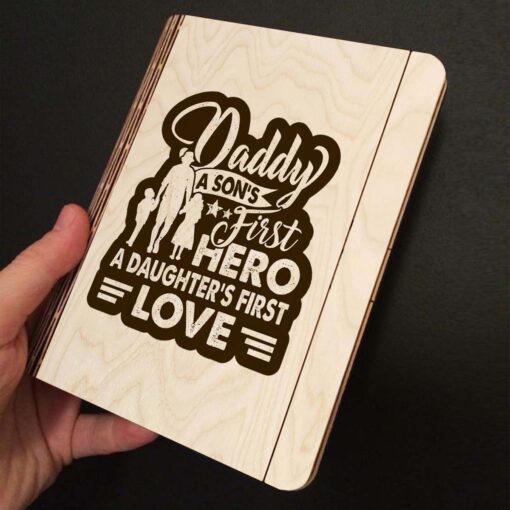 Daddy
A SON'S
First
HERO
A DAUGHTER'S FIRST
LOVE